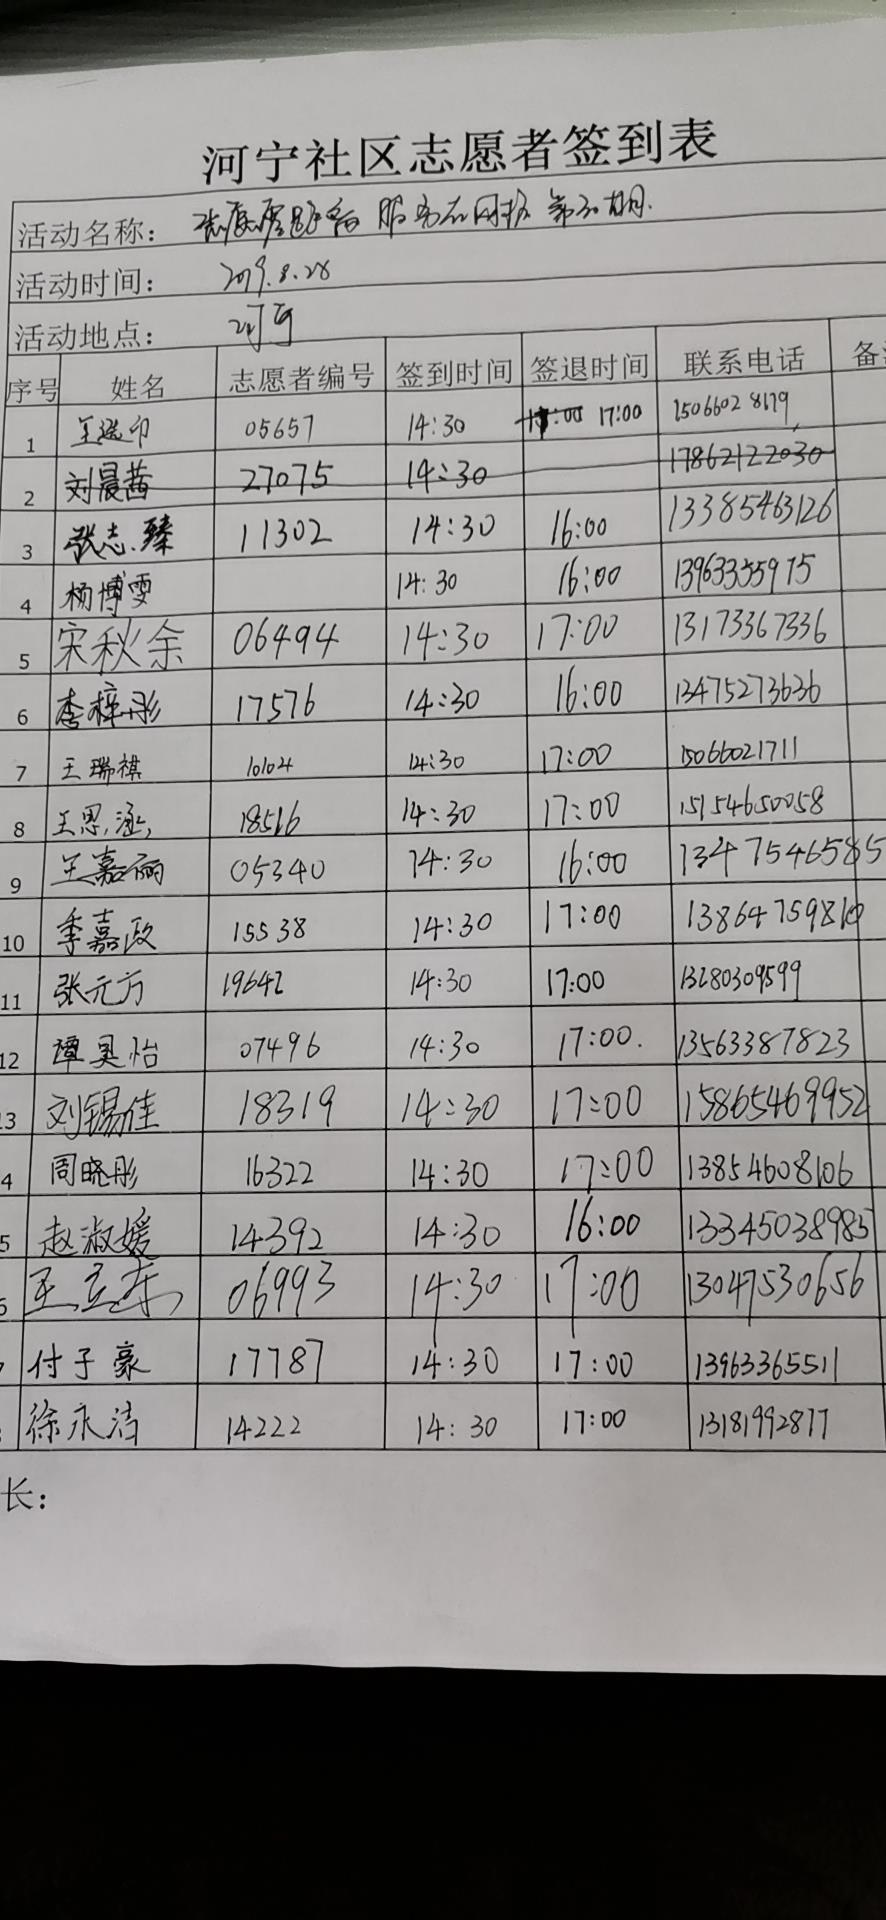 河宁社区志愿者签到表
活动名称: 服务在网格 第30期.
活动时间: 2019.8.28
活动地点: 河宁
序号 姓名 志愿者编号 签到时间 签退时间 联系电话 备
1 05657 14:30 17:00 15066028179
2 刘晨茜 27075 14:30 17862122030
3 张志臻 11302 14:30 16:00 13385463126
4 杨博雯 14:30 16:00 13963355975
5 宋秋余 06494 14:30 17:00 13173367336
6 李梓彤 17576 14:30 16:00 13475273636
7 王瑞祺 10104 14:30 17:00 15066021711
8 王思涵 18516 14:30 17:00 15154650058
9 王嘉丽 05340 14:30 16:00 1347546585
10 季嘉政 15538 14:30 17:00 13864759810
11 张元方 19642 14:30 17:00 13280309599
12 谭昊怡 07496 14:30 17:00. 13563387823
13 刘锡佳 18319 14:30 17:00 15865469952
4 周晓彤 16322 14:30 17:00 13854608106
5 赵淑媛 14392 14:30 16:00 13345038985
6 王立东 06993 14:30 17:00 13047530656
付子豪 17787 14:30 17:00 13963365511
徐永洁 14222 14:30 17:00 13181992877
长: